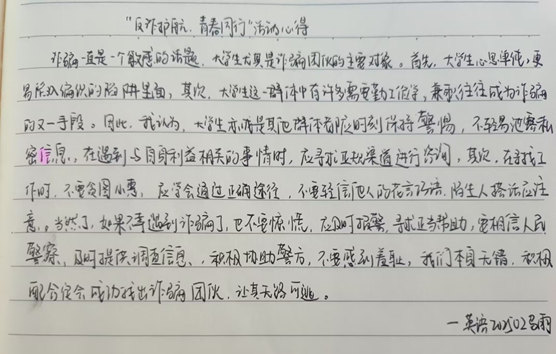 “反诈护航，青春同行”活动心得
诈骗一直是一个敏感的话题，大学生尤其是诈骗团伙的主要对象。首先，大学生心思单纯，更
易陷入编织的陷阱里面，其次，大学生这一群体中有许多需要勤工俭学，兼职往往成为诈骗
的又一手段。因此，我认为，大学生亦或是其他群体都应时刻保持警惕，不轻易泄露私
密信息，在遇到与自身利益相关的事情时，应寻求正规渠道进行咨询，其次，在寻找工
作时，不要贪图小惠，应学会通过正确途径，不要轻信他人的花言巧语，陌生人搭话应注
意。当然了，如果不幸遇到诈骗了，也不要惊慌，应及时报警，寻求正当帮助，要相信人民
警察，及时提供调查信息，积极协助警方，不要感到羞耻，我们本身无错，积极
配合定会成功找出诈骗团伙，让其无路可逃。
—英语202502吕丽